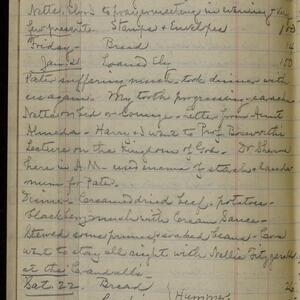 Nettie, Clara to prayermeeting in evening - Clay
few presents. Stamps & Envelopes 1 00
Friday - Bread 4
Jan. 21 Loaned Clay 1 50
Pater suffering much - took dinner with
us again. My tooth progressing - earache
Nettie on bed or lounge - letter from Aunt
Almeda - Harry & I went to Prof Bosworth's
lecture on the Kingdom of God. Dr
here in A.M. - used enema of starch & laudanum
for Pater.
Dinner - Creamed dried beef - potatoes -
blackberry mush with Cream Sauce -
Stewed some prunes & baked beans - Cora
went to stay all night with Nellie Fitzgerald
at the Crandalls -
Sat 22. Bread
Hummers 25